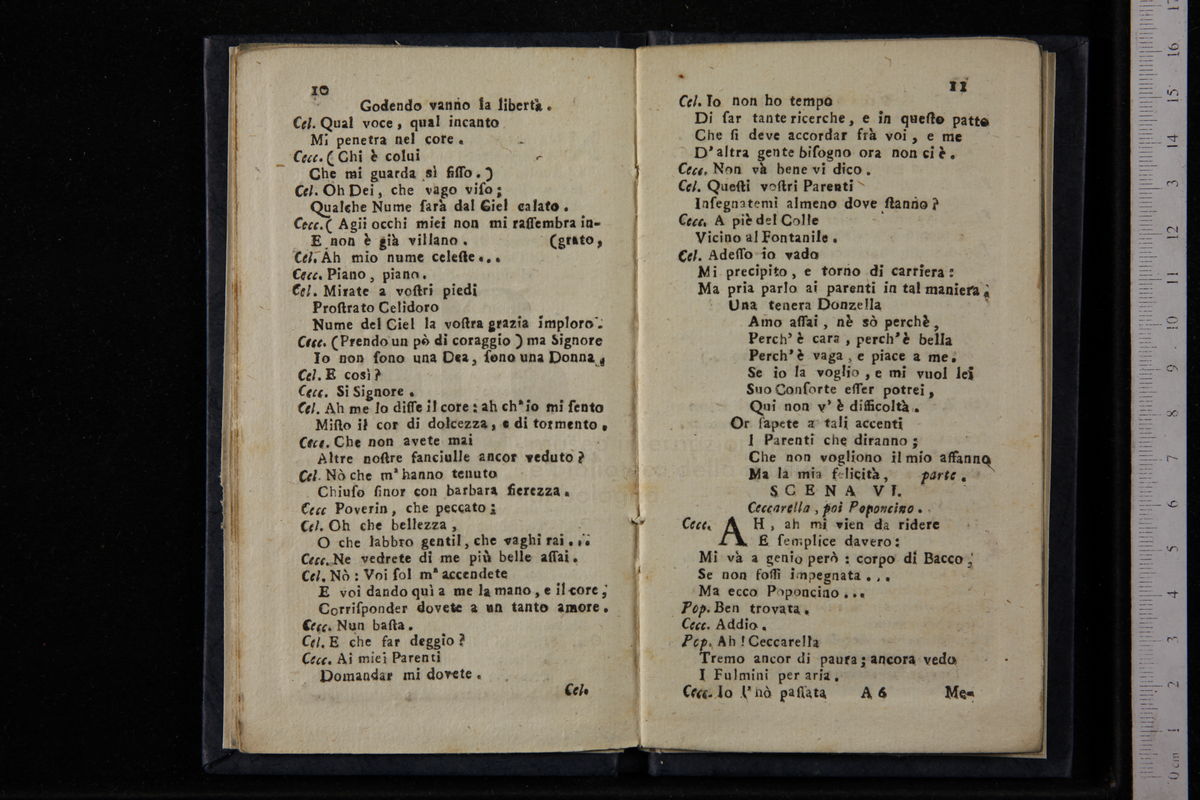 10
Godendo vanno la libertà.
Cel. Qual voce, qual incanto
Mi penetra nel core.
Cecc. (Chi è colui
Che mi guarda sì fiſſo.)
Cel. Oh Dei, che vago viſo;
Qualche Nume ſarà dal Ciel calato.
Cecc. (Agii occhi miei non mi raſſembra in-
E non è già villano. (grato,
Cel. Ah mio nume celeſte...
Cecc. Piano, piano.
Cel. Mirate a voſtri piedi
Proſtrato Celidoro
Nume del Ciel la voſtra grazia imploro.
Cecc. (Prendo un pò di coraggio) ma Signore
Io non ſono una Dea, ſono una Donna.
Cel. E così?
Cecc. Si Signore.
Cel. Ah me lo diſſe il core: ah ch'io mi ſento
Miſto il cor di dolcezza, e di tormento.
Cecc. Che non avete mai
Altre noſtre fanciulle ancor veduto?
Cel. Nò che m'hanno tenuto
Chiuſo finor con barbara fierezza.
Cecc Poverin, che peccato;
Cel. Oh che bellezza,
O che labbro gentil, che vaghi rai...
Cecc. Ne vedrete di me più belle aſſai.
Cel. Nò: Voi ſol m'accendete
E voi dando quì a me la mano, e il core;
Corriſponder dovete a un tanto amore.
Cecc. Nun baſta.
Cel. E che far deggio?
Cecc. Ai miei Parenti
Domandar mi dovete.
Cel.
11
Cel. Io non ho tempo
Di far tante ricerche, e in queſto patto
Che ſi deve accordar frà voi, e me
D'altra gente biſogno ora non ci è.
Cecc. Non và bene vi dico.
Cel. Queſti voſtri Parenti
Inſegnatemi almeno dove ſtanno?
Cecc. A piè del Colle
Vicino al Fontanile.
Cel. Adeſſo io vado
Mi precipito, e torno di carriera:
Ma pria parlo ai parenti in tal maniera.
Una tenera Donzella
Amo aſſai, nè sò perchè,
Perch'è cara, perch'è bella
Perch'è vaga, e piace a me.
Se io la voglio, e mi vuol lei
Suo Conſorte eſſer potrei,
Qui non v'è difficoltà.
Or ſapete a tali accenti
I Parenti che diranno;
Che non vogliono il mio affanno
Ma la mia felicità, parte.
SCENA VI.
Ceccarella, poi Poponcino.
Cecc. AH, ah mi vien da ridere
E ſemplice davero:
Mi và a genio però: corpo di Bacco;
Se non foſſi impegnata...
Ma ecco Poponcino...
Pop. Ben trovata.
Cecc. Addio.
Pop. Ah! Ceccarella
Tremo ancor di paura; ancora vedo
I Fulmini per aria.
Cecc. Io l'hò paſſata A 6 Me-